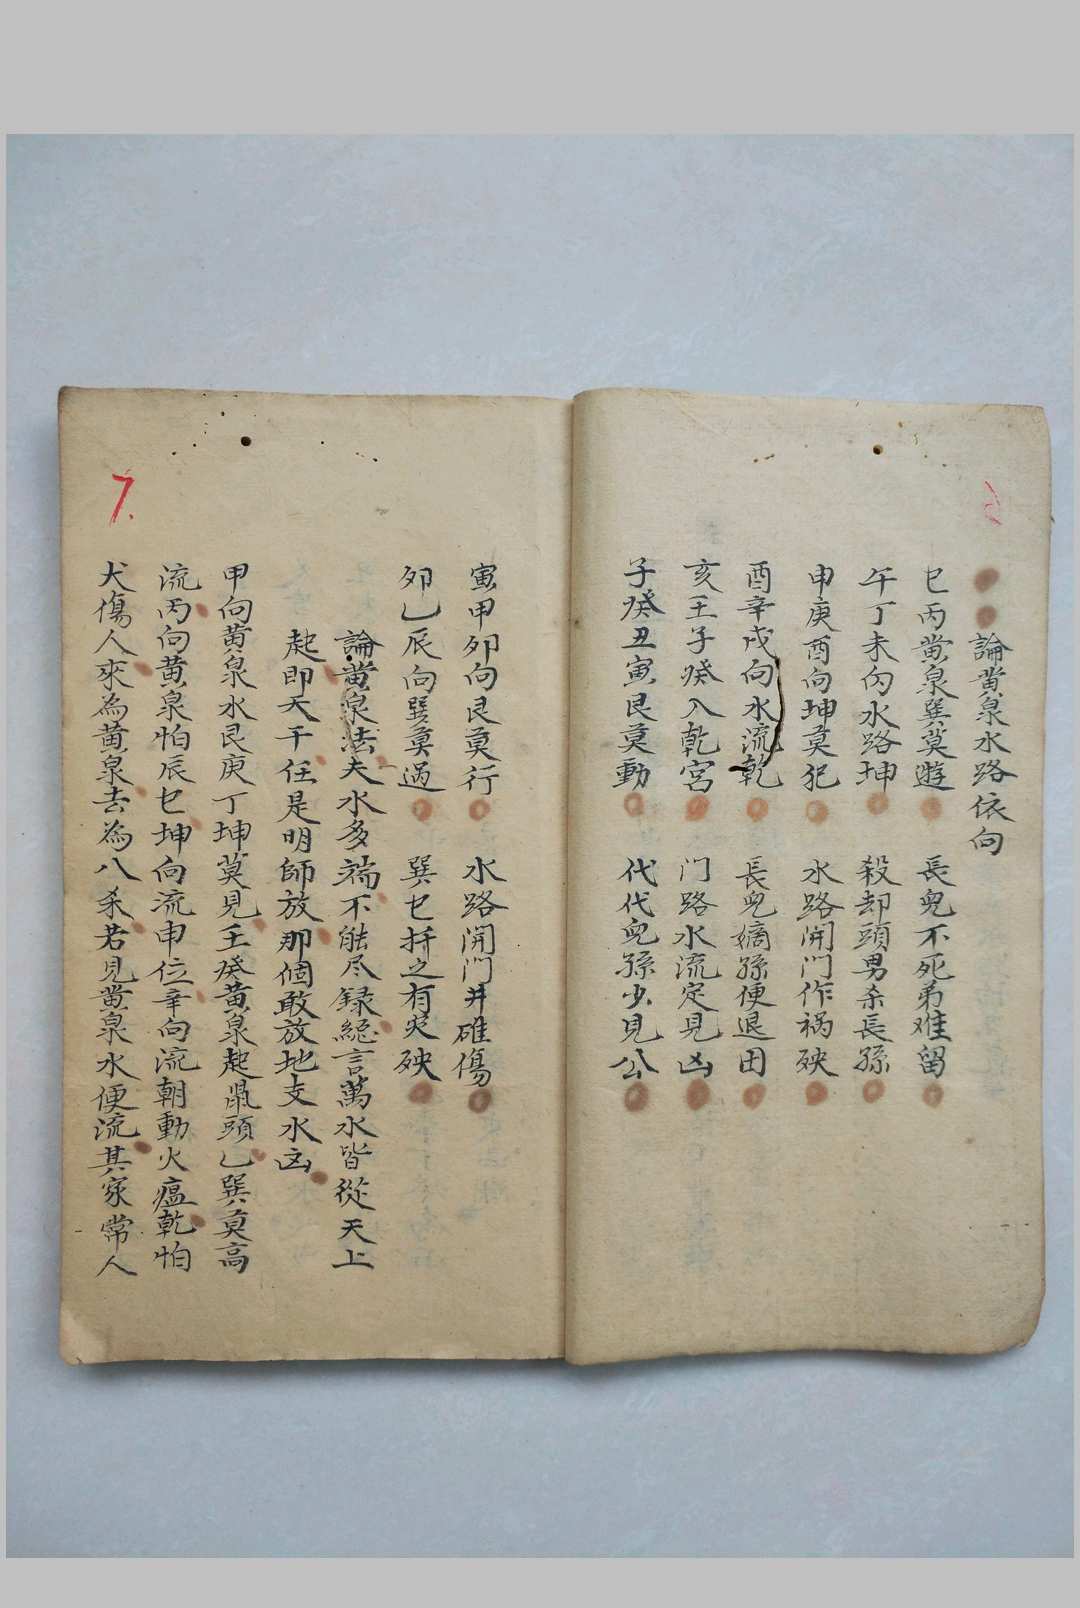 論黄泉水路依向
巳丙黄泉巽莫遊 長兒不死弟难留
午丁未向水路坤 殺却頭男杀長孫
申庚酉向坤莫犯 水路開門作禍殃
酉辛戌向水流乾 長兒嫡孫便退田
亥壬子癸入乾宮 門路水流定見凶
子癸丑寅艮莫動 代代兒孫少見公
6
寅甲卯向艮莫行 水路開門井碓傷
卯乙辰向巽莫過 巽巳拼之有灾殃
論黄泉法夫水多端不能尽録緫言萬水皆從天上
起即天干任是明師放那個敢放地支水凶
甲向黄泉水艮庚丁坤莫見壬癸黄泉起鼠頭乙巽莫高
流丙向黄泉怕辰巳坤向流申位辛向流朝動火瘟乾怕
犬傷人來為黄泉去為八杀若見黄泉水便流其家常人
7.